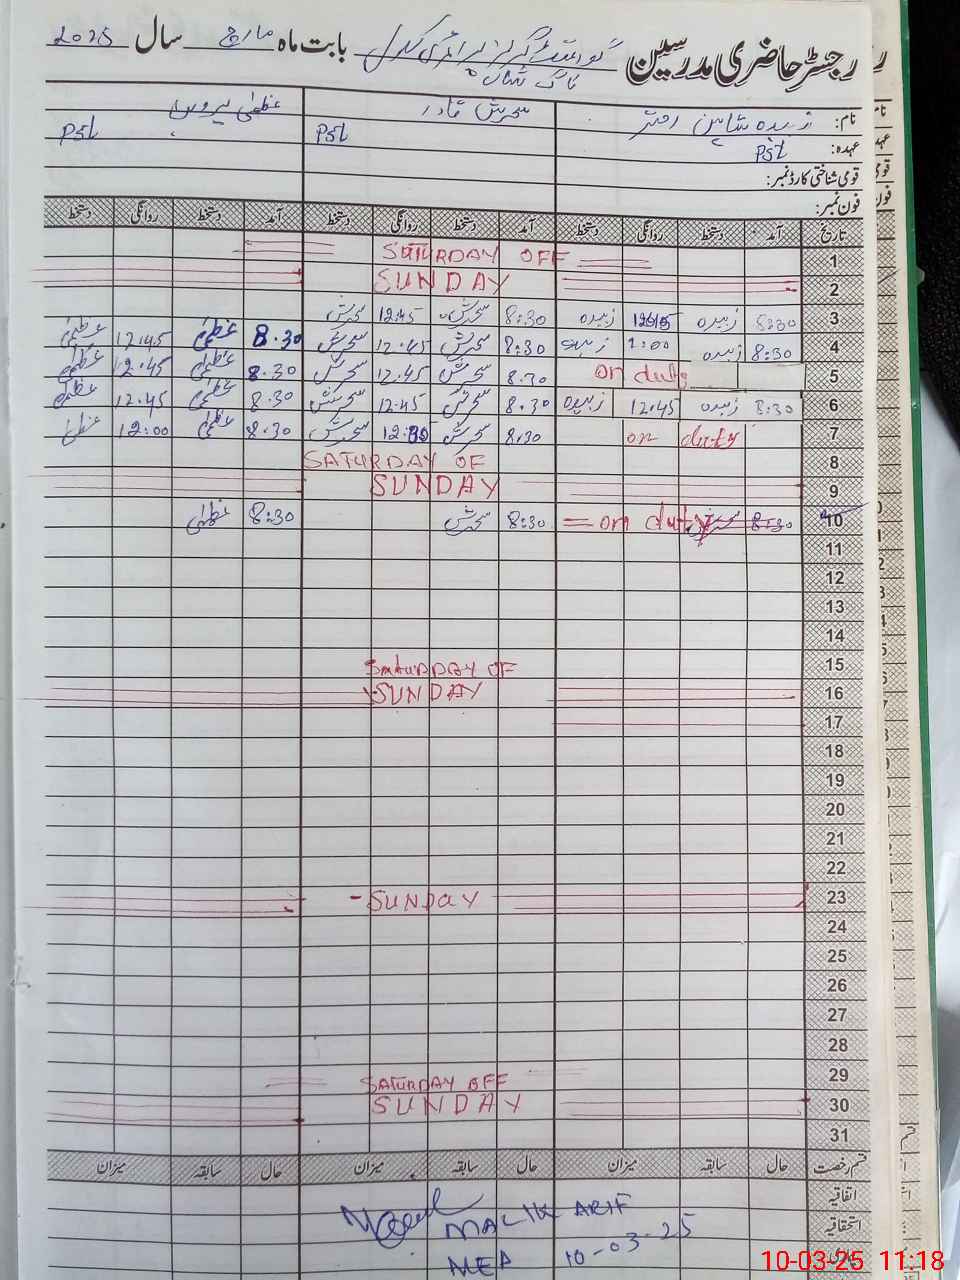 رجسٹر حاضری مدرسین گورنمنٹ گرلز پرائمری سکول بابت ماہ مارچ سال 2025
نام: زبیدہ شاہین اختر سحرش قادر عظمیٰ پروین
عہدہ: PST PST PST
قومی شناختی کارڈ نمبر:
فون نمبر:
تاریخ آمد دستخط روانگی دستخط آمد دستخط روانگی دستخط آمد دستخط روانگی دستخط
1 SATURDAY OFF
2 SUNDAY
3 8:30 زبیدہ زبیدہ 8:30 سحرش 12:45 سحرش
4 8:30 زبیدہ 1:00 زبیدہ 8:30 سحرش 12.45 سحرش 8.30 عظمیٰ 12:45 عظمیٰ
5 on duty 8.30 سحرش 12.45 سحرش 8.30 عظمیٰ 12.45 عظمیٰ
6 8:30 زبیدہ 12.45 زبیدہ 8.30 سحرش 12.45 سحرش 8.30 عظمیٰ 12.45 عظمیٰ
7 on duty 8.30 سحرش سحرش 8.30 عظمیٰ 12:00 عظمیٰ
8 SATURDAY OF
9 SUNDAY
10 8:30 on duty 8:30 سحرش 8:30 عظمیٰ
11
12
13
14
15 SATURDAY OF
16 SUNDAY
17
18
19
20
21
22
23 SUNDAY
24
25
26
27
28
29 SATURDAY OFF
30 SUNDAY
31
قسم رخصت حال سابقہ میزان حال سابقہ میزان حال سابقہ میزان
اتفاقیہ
استحقاقیہ
MALIK ARIF
MEA 10-03-25
10-03-25 11:18